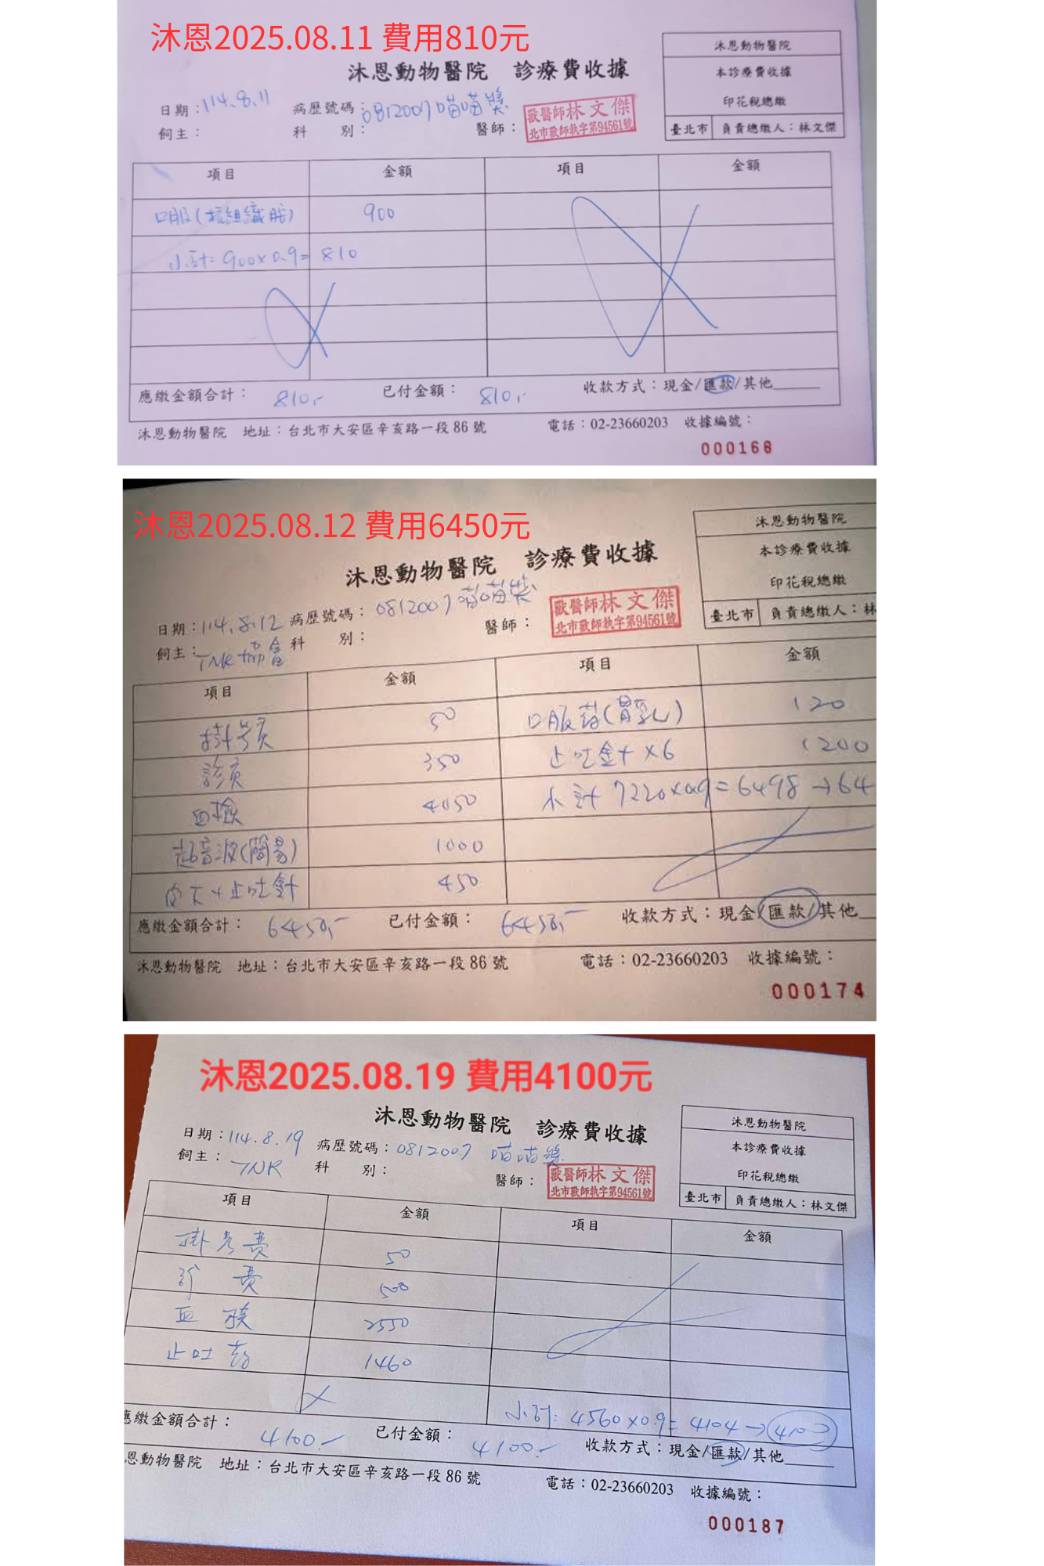 沐恩2025.08.11 費用810元
沐恩動物醫院 診療費收據
沐恩動物醫院
本診療費收據
印花稅總繳
臺北市 負責總繳人：林文傑
日期：114.8.11 病歷號碼：0812007 喵喵獎
飼主： 科 別： 醫師：
獸醫師林文傑
北市獸師執字第94561號
項目 金額 項目 金額
口服(抗組織胺) 900
小計=900x0.9= 810
應繳金額合計： 810,- 已付金額： 810,- 收款方式：現金/匯款/其他
沐恩動物醫院 地址：台北市大安區辛亥路一段86號 電話：02-23660203 收據編號：
000168
沐恩2025.08.12 費用6450元
沐恩動物醫院 診療費收據
沐恩動物醫院
本診療費收據
印花稅總繳
臺北市 負責總繳人：林
日期：114.8.12 病歷號碼：0812007 喵喵獎
飼主：TNR協會 科 別： 醫師：
獸醫師林文傑
北市獸師執字第94561號
項目 金額 項目 金額
掛號費 50 口服葯(胃乳) 120
診費 350 止吐針x6 1200
血檢 4050 小計 7220x0.9=6498→64
超音波(簡易) 1000
皮下+止吐針 450
應繳金額合計： 6450,- 已付金額： 6450,- 收款方式：現金/匯款/其他
沐恩動物醫院 地址：台北市大安區辛亥路一段86號 電話：02-23660203 收據編號：
000174
沐恩2025.08.19 費用4100元
沐恩動物醫院 診療費收據
沐恩動物醫院
本診療費收據
印花稅總繳
臺北市 負責總繳人：林文傑
日期：114.8.19 病歷號碼：0812007 喵喵獎
飼主：TNR 科 別： 醫師：
獸醫師林文傑
北市獸師執字第94561號
項目 金額 項目 金額
掛号費 50
診費 500
血檢 2550
止吐葯 1460
小計: 4560x0.9=4104→
應繳金額合計： 4100.- 已付金額： 4100.- 收款方式：現金/匯款/其他
恩動物醫院 地址：台北市大安區辛亥路一段86號 電話：02-23660203 收據編號：
000187